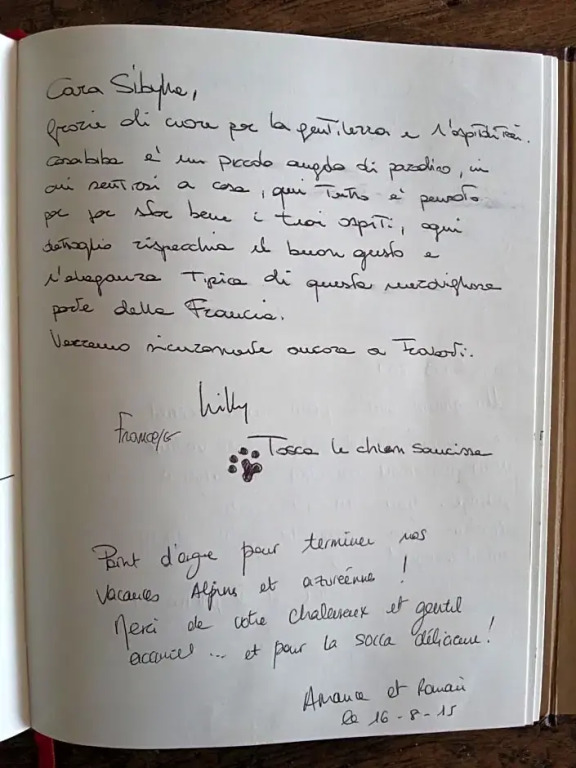 Cara Sibylle,
grazie di cuore per la gentilezza e l'ospitalità.
casabiba è un piccolo angolo di paradiso, in
cui sentirsi a casa, qui tutto è pensato
per far star bene i tuoi ospiti, ogni
dettaglio rispecchia il buon gusto e
l'eleganza tipica di questa meravigliosa
parte della Francia.
Verremo sicuramente ancora a trovarti.
Lilly
Tosca le chien saucisse
Point d'orgue pour terminer nos
vacances Alpins et azuréenne !
Merci de votre chaleureux et gentil
accueil ... et pour la socca délicieuse !
et Romain
le 16-8-15